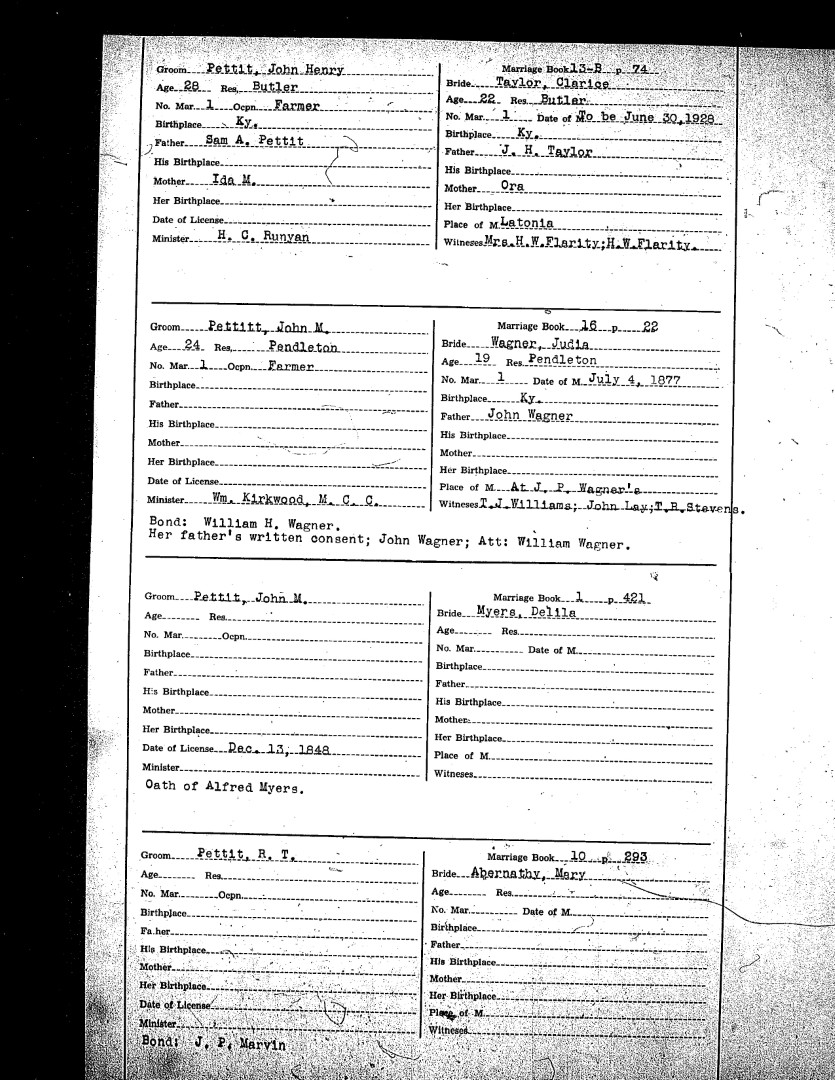 Groom Pettit, John Henry
Age 28 Res. Butler
No. Mar. 1 Ocpn. Farmer
Birthplace Ky.
Father Sam A. Pettit
His Birthplace
Mother Ida M.
Her Birthplace
Date of License
Minister H. C. Runyan
Marriage Book 13-B p. 74
Bride Taylor, Clarice
Age 22 Res. Butler
No. Mar. 1 Date of M. To be June 30, 1928
Birthplace Ky.
Father J. H. Taylor
His Birthplace
Mother Ora
Her Birthplace
Place of M. Latonia
Witnesses Mrs.H.W.Flarity;H.W.Flarity.
Groom Pettitt, John M.
Age 24 Res. Pendleton
No. Mar. 1 Ocpn. Farmer
Birthplace
Father
His Birthplace
Mother
Her Birthplace
Date of License
Minister Wm. Kirkwood, M. C. C.
Marriage Book 16 p. 22
Bride Wagner, Judia
Age 19 Res. Pendleton
No. Mar. 1 Date of M. July 4, 1877
Birthplace Ky.
Father John Wagner
His Birthplace
Mother
Her Birthplace
Place of M. At J. P. Wagner's
Witnesses T.J.Williams; John Lay;T.B.Stevens.
Bond: William H. Wagner.
Her father's written consent; John Wagner; Att: William Wagner.
Groom Pettit, John M.
Age Res.
No. Mar. Ocpn.
Birthplace
Father
His Birthplace
Mother
Her Birthplace
Date of License Dec. 13, 1848
Minister
Marriage Book 1 p. 421
Bride Myers, Delila
Age Res.
No. Mar. Date of M.
Birthplace
Father
His Birthplace
Mother
Her Birthplace
Place of M.
Witnesses
Oath of Alfred Myers.
Groom Pettit, R. T.
Age Res.
No. Mar. Ocpn.
Birthplace
Father
His Birthplace
Mother
Her Birthplace
Date of License
Minister
Marriage Book 10 p. 293
Bride Abernathy, Mary
Age Res.
No. Mar. Date of M.
Birthplace
Father
His Birthplace
Mother
Her Birthplace
Place of M.
Witnesses
Bond: J. P. Marvin